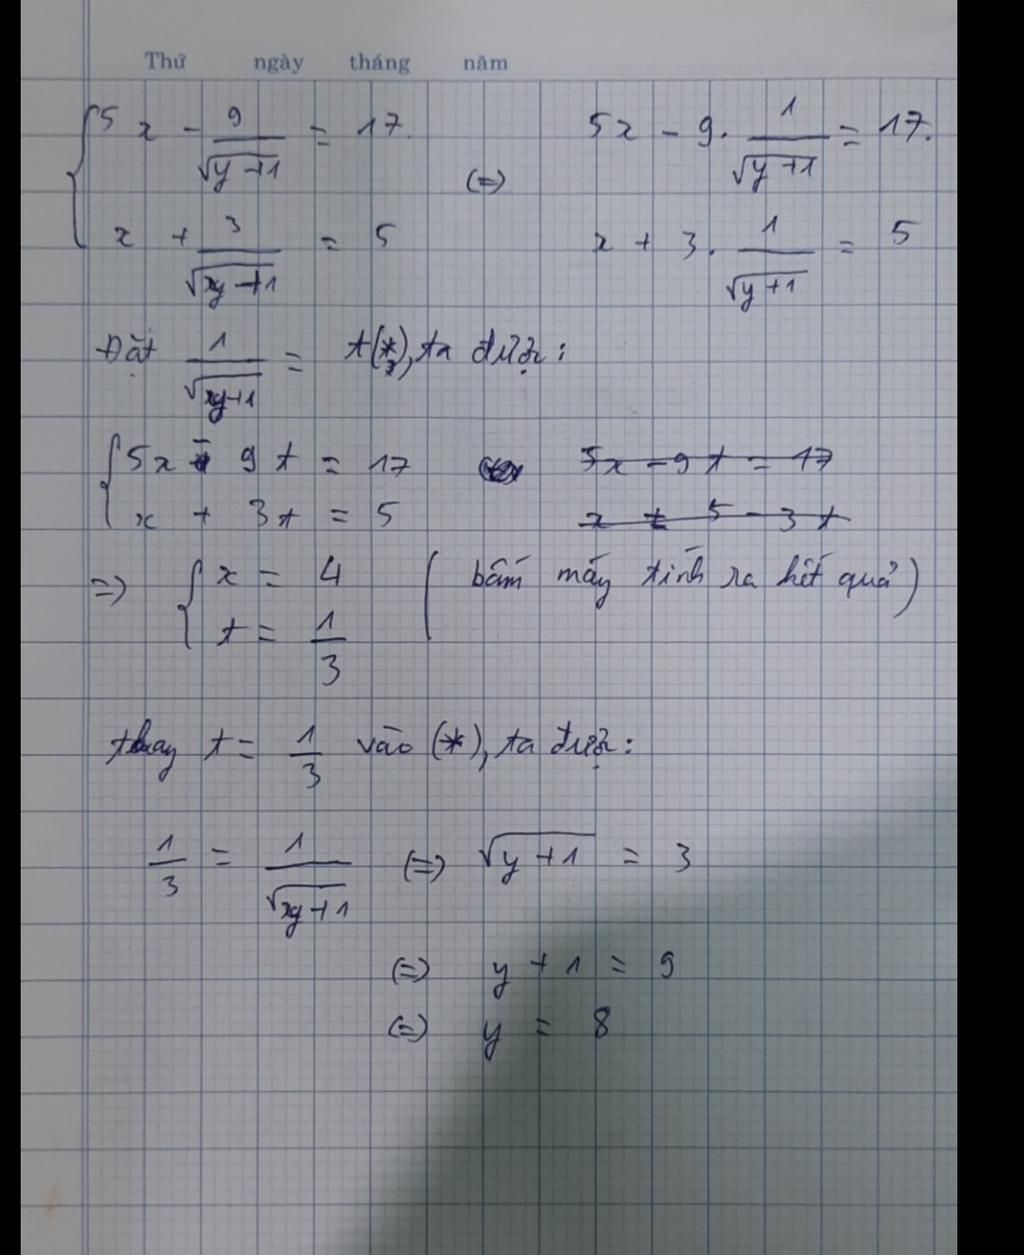 Thứ ngày tháng năm
5x - 9/√(y+1) = 17. (=) 5x - 9. 1/√(y+1) = 17.
x + 3/√(y+1) = 5 x + 3. 1/√(y+1) = 5
Đặt 1/√(y+1) = t(*), ta được:
5x - 9t = 17 5x - 9t = 17
x + 3t = 5 x = 5 - 3t
=> x = 4 (bấm máy tính ra kết quả)
t = 1/3
thay t = 1/3 vào (*), ta được:
1/3 = 1/√(y+1) (=) √(y+1) = 3
(=) y + 1 = 9
(=) y = 8